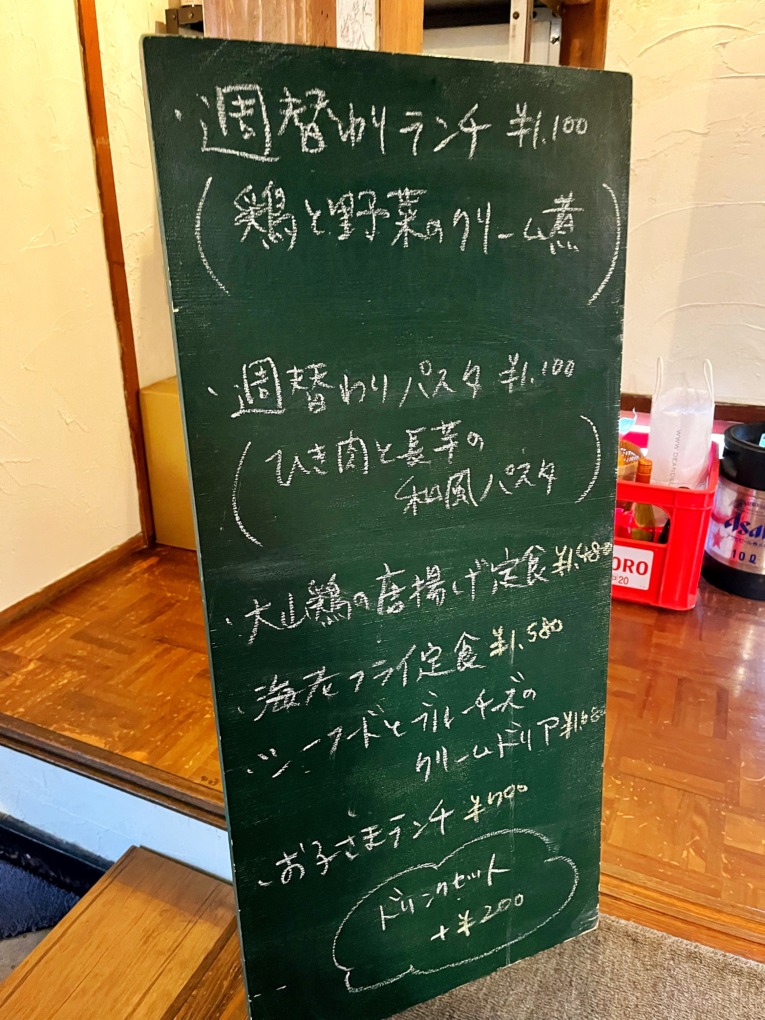 ・週替わりランチ ¥1.100
(鶏と野菜のクリーム煮)
・週替わりパスタ ¥1.100
(ひき肉と長芋の
和風パスタ)
・大山鶏の唐揚げ定食 ¥1.480
・海老フライ定食 ¥1.580
・シーフードとブルーチーズの
クリームドリア ¥1.680
・お子さまランチ ¥700
ドリンクセット
+¥200
Asahi
10ℓ
ORO